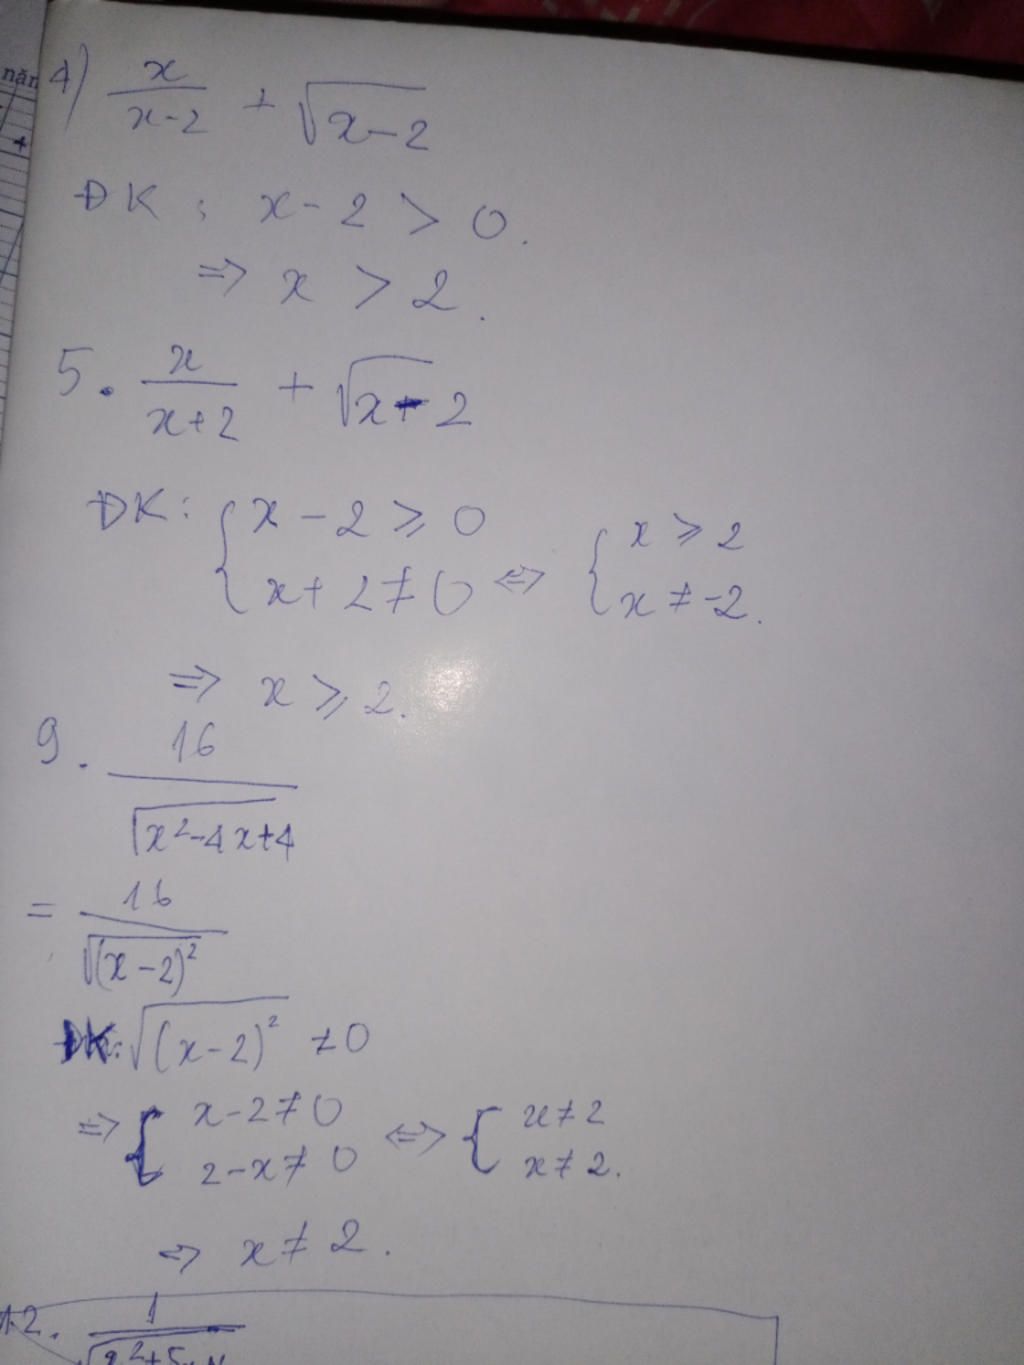 năn
4) x/(x-2) + √(x-2)
ĐK: x - 2 > 0.
⇒ x > 2.
5. x/(x+2) + √(x-2)
ĐK: { x - 2 ≥ 0 ; x + 2 ≠ 0 ⇔ { x ≥ 2 ; x ≠ -2.
⇒ x ≥ 2.
9. 16/√(x²-4x+4)
= 16/√((x-2)²)
ĐK: √((x-2)²) ≠ 0
⇒ { x-2 ≠ 0 ; 2-x ≠ 0 ⇔ { x ≠ 2 ; x ≠ 2.
⇔ x ≠ 2.
12. 1